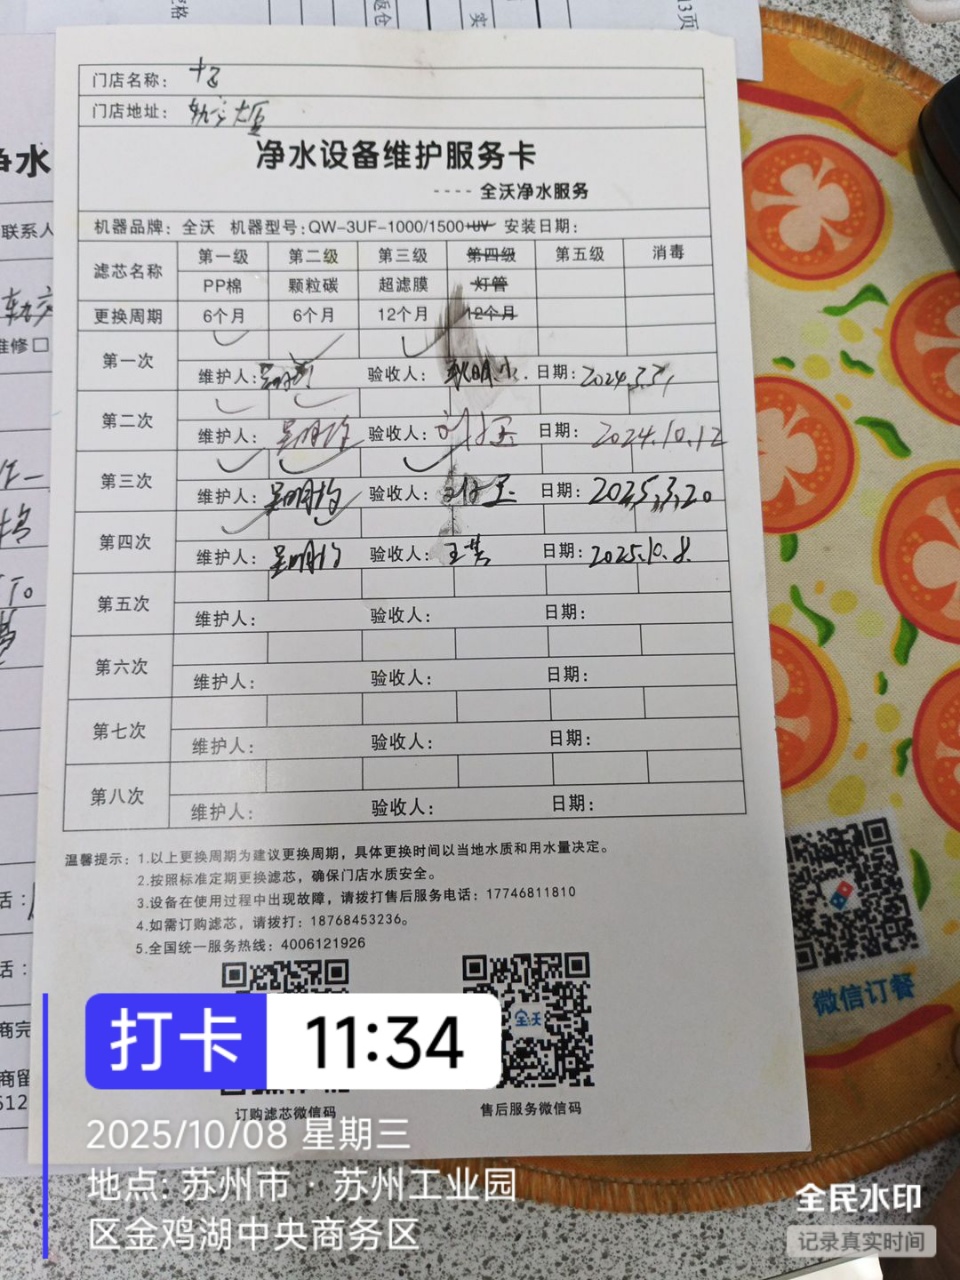 门店名称：
门店地址： 轨交大厦
净水设备维护服务卡
---- 全沃净水服务
机器品牌：全沃 机器型号：QW-3UF-1000/1500+UV 安装日期：
滤芯名称 第一级 第二级 第三级 第四级 第五级 消毒
PP棉 颗粒碳 超滤膜 灯管
更换周期 6个月 6个月 12个月 12个月
第一次
维护人： 验收人： 日期：
第二次
维护人： 验收人： 日期：2024.10.12
第三次
维护人： 验收人： 日期：2025.3.20
第四次
维护人： 验收人： 日期：2025.10.8.
第五次
维护人： 验收人： 日期：
第六次
维护人： 验收人： 日期：
第七次
维护人： 验收人： 日期：
第八次
维护人： 验收人： 日期：
温馨提示：1.以上更换周期为建议更换周期，具体更换时间以当地水质和用水量决定。
2.按照标准定期更换滤芯，确保门店水质安全。
3.设备在使用过程中出现故障，请拨打售后服务电话：17746811810
4.如需订购滤芯，请拨打：18768453236。
5.全国统一服务热线：4006121926
全沃
订购滤芯微信码 售后服务微信码
微信订餐
打卡 11:34
2025/10/08 星期三
地点：苏州市 · 苏州工业园
区金鸡湖中央商务区
全民水印
记录真实时间
净水
联系人
维修□